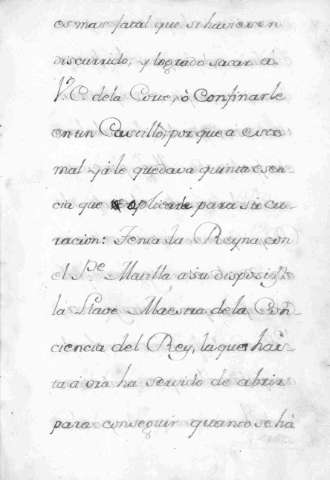 es mas fatal que si huviesen
discurrido, y logrado sacar a
V. C. de la Corte, ò Confinarle
en un Castillo, porque a este
mal ya le quedava quinta esen
cia que aplicarle para su cu-
racion: Tenia la Reyna con
el Pe. a su disposiz.n
la Llave Maestra de la Con
ciencia del Rey, la que has-
ta aora ha servido de abrir
para conseguir quanto se hà